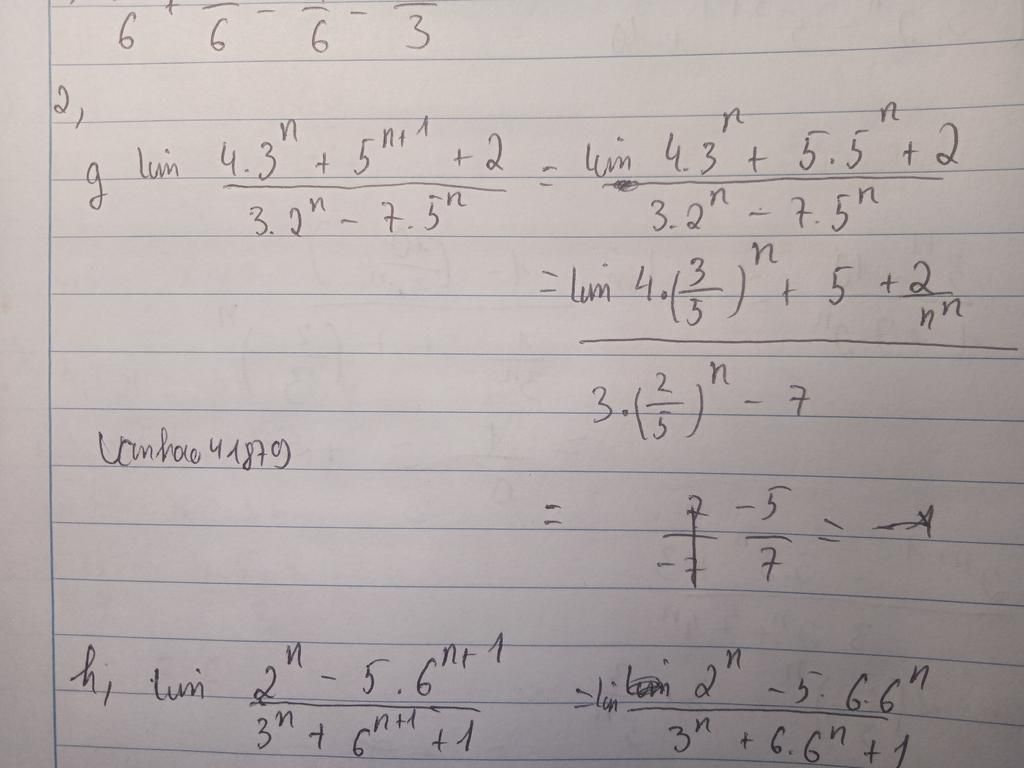 6 + 6 - 6 - 3
2,
g lim (4.3^n + 5^{n+1} + 2)/(3.2^n - 7.5^n) = lim (4.3^n + 5.5^n + 2)/(3.2^n - 7.5^n)
= lim (4.(3/5)^n + 5 + 2/n^n)/(3.(2/5)^n - 7)
Vanhao41879
= -5/7
h, lim (2^n - 5.6^{n+1})/(3^n + 6^{n+1} + 1) = lim (2^n - 5.6.6^n)/(3^n + 6.6^n + 1)